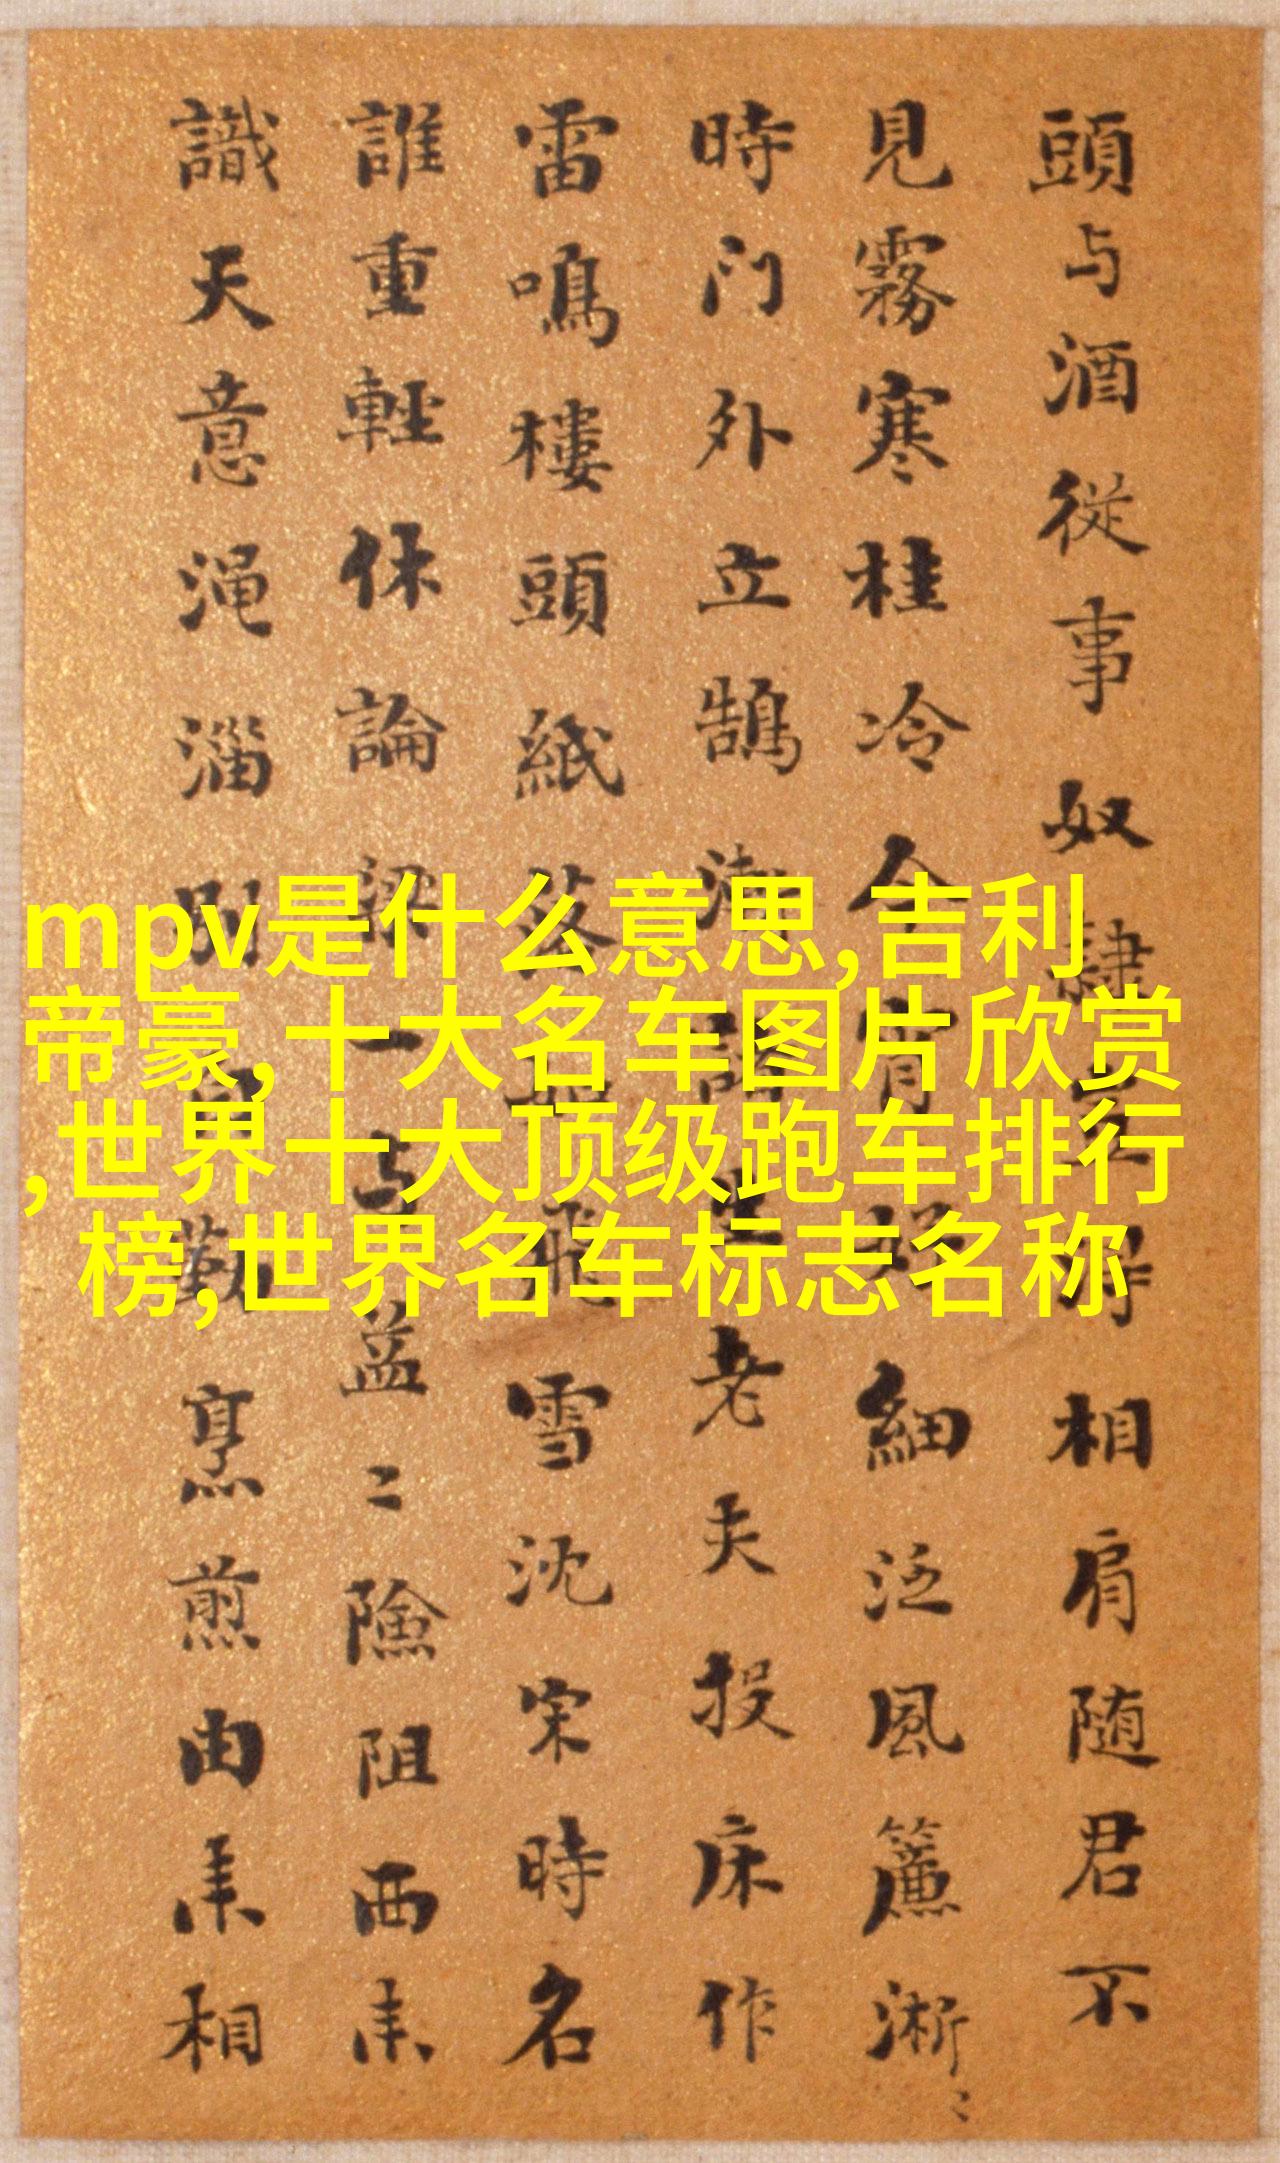 頭与酒從事奴隸相肩随君不
見霧寒桂冷今宵細泛風簾淅〻
時门外立鵠生老夫投床作
雷鳴樓頭紙落飛雪沈宋時名
誰重輕休論梁一与孟〻險阻西来
識天意渑淄別烹煎由来相
mpv是什么意思,吉利
帝豪,十大名车图片欣赏
,世界十大顶级跑车排行
榜,世界名车标志名称